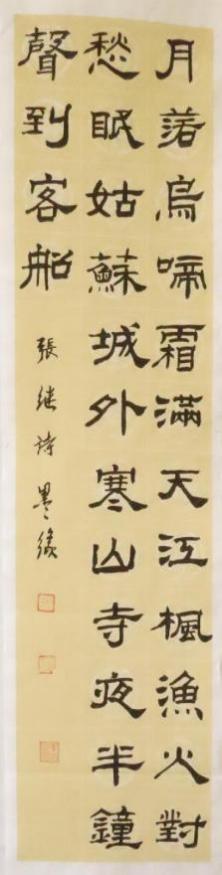 月落烏啼霜滿天江楓漁火對
愁眠姑蘇城外寒山寺夜半鐘
聲到客船
張继诗墨缘